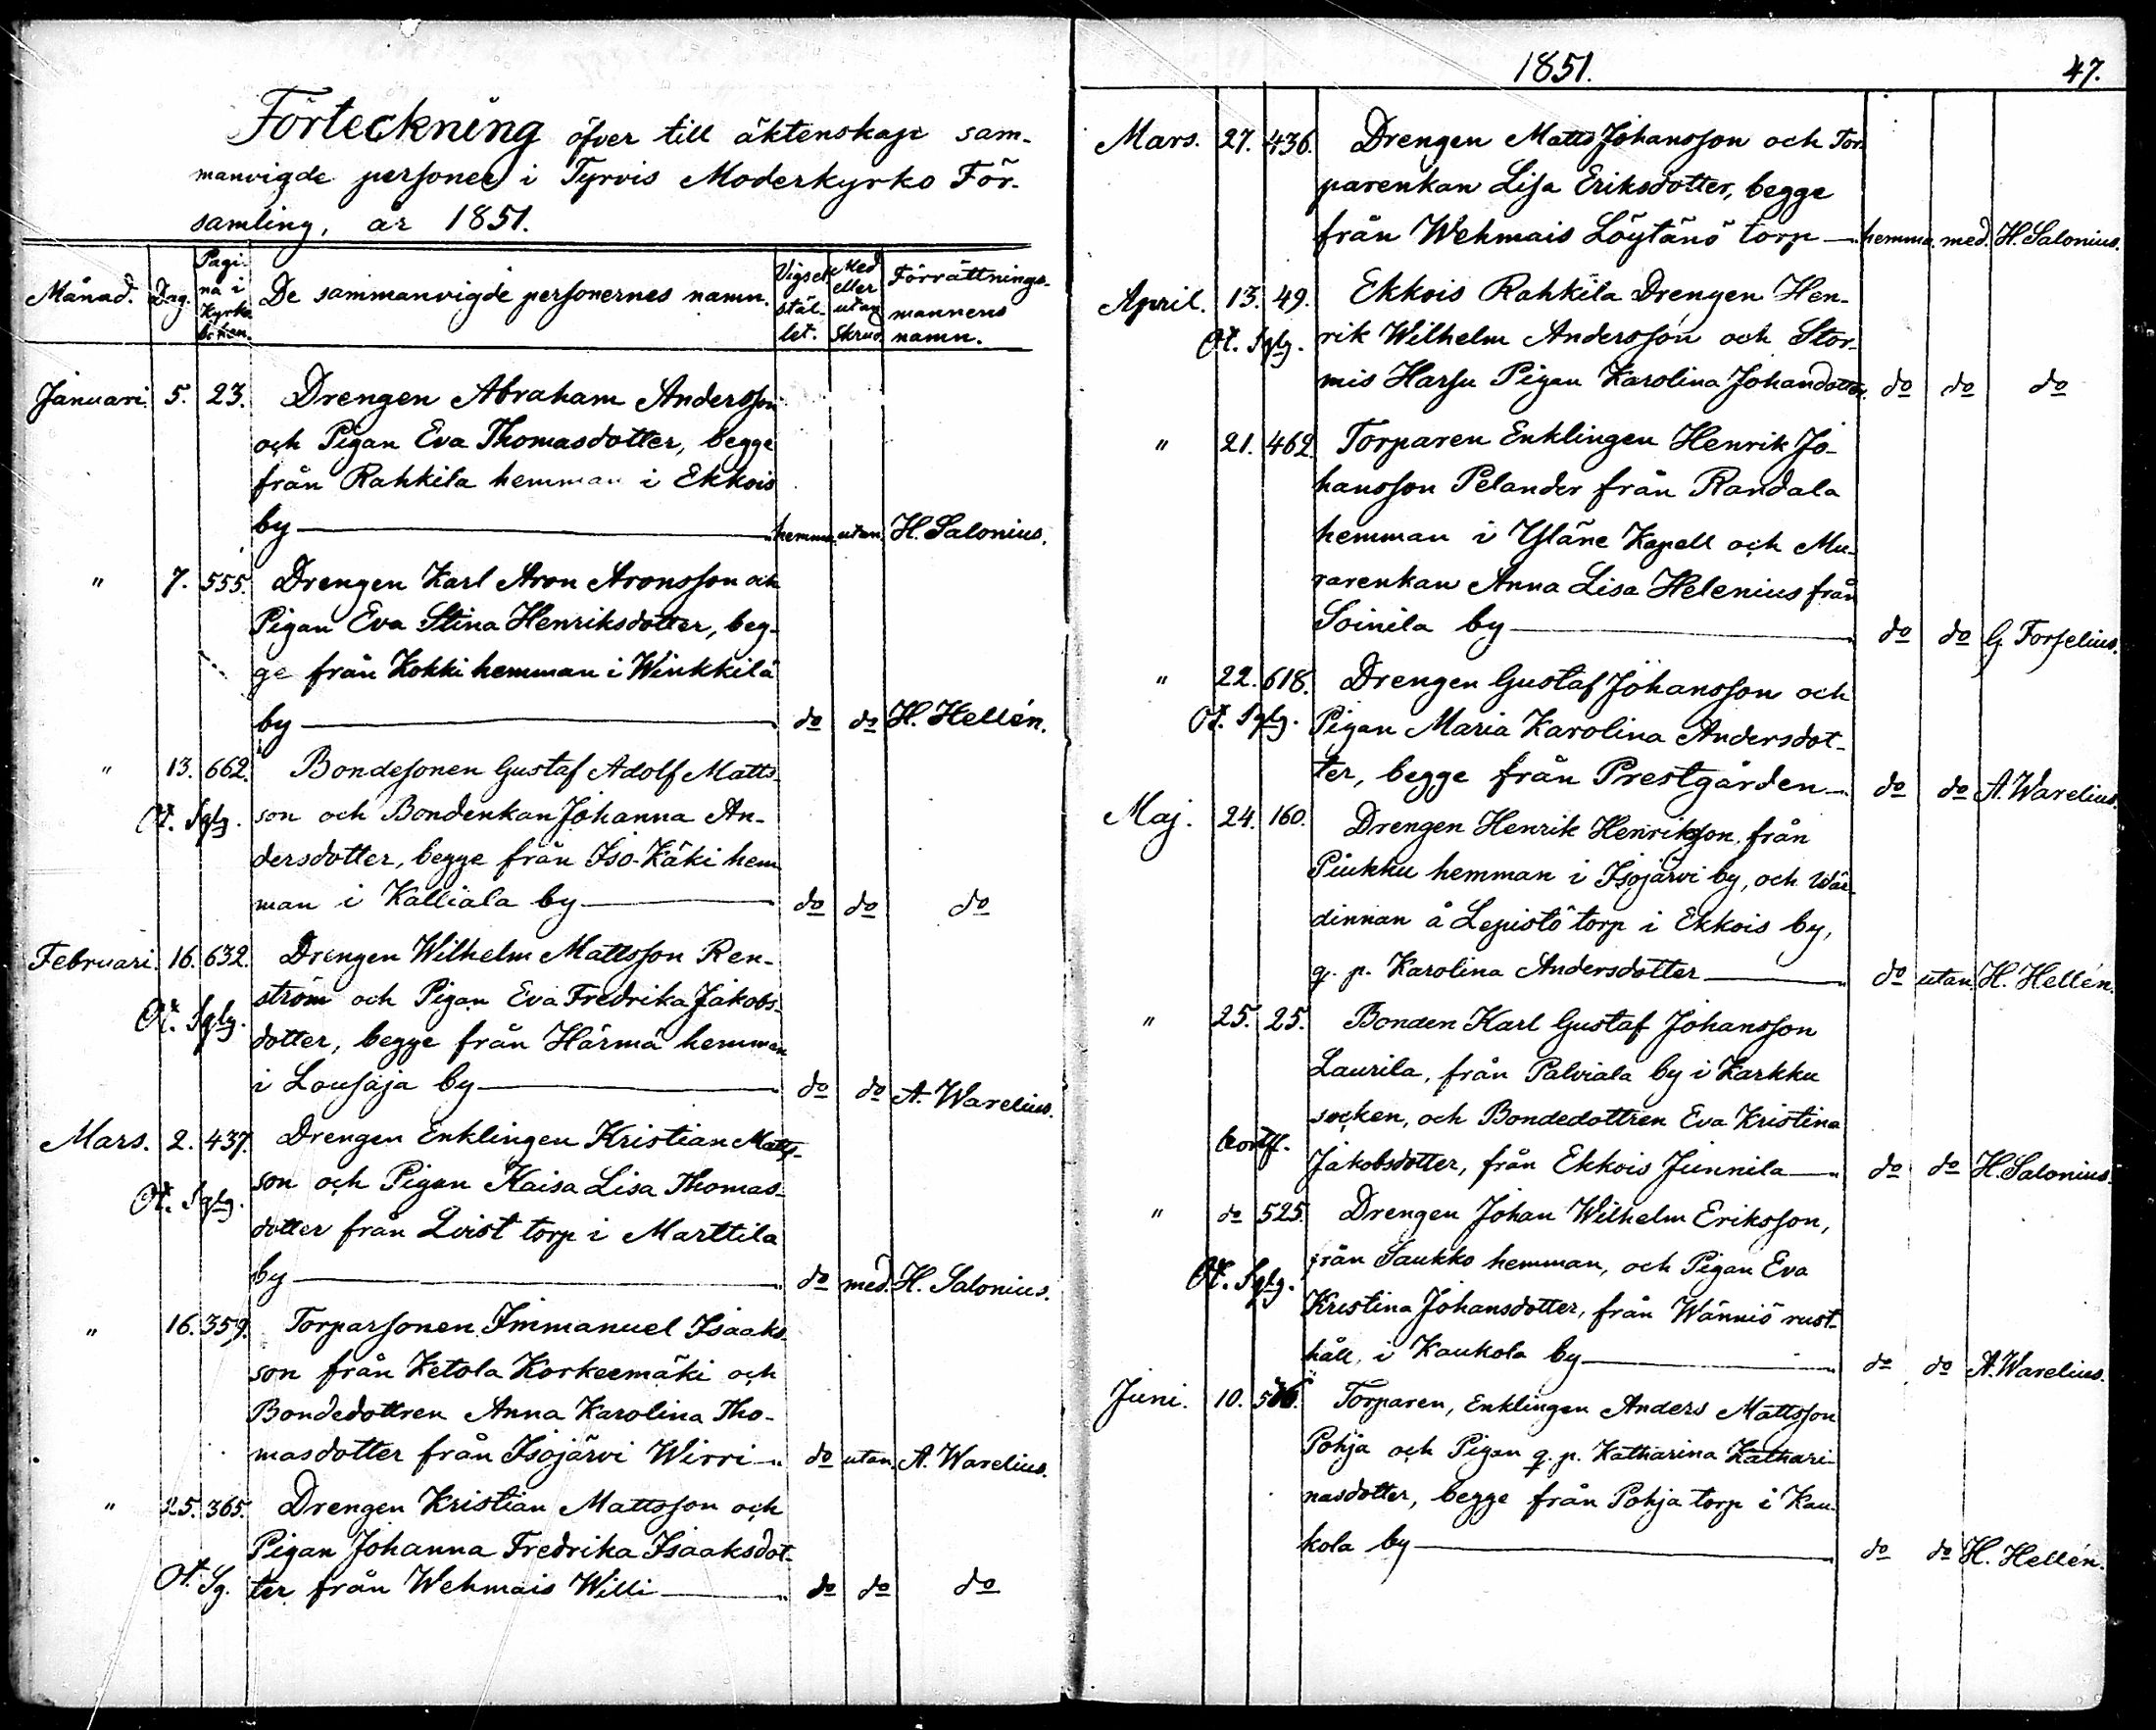 Förteckning öfver till äktenskap sam-
manvigde personer i Tyrvis Moderkyrko För-
samling, år 1851.
Månad. Dag. Pagina i Kyrkoboken. De sammanvigde personernes namn. Vigselstället. Med eller utan Skrud. Förrättningsmannens namn.
Januari. 5. 23. Drengen Abraham Andersson
och Pigan Eva Thomasdotter, begge
från Rahkila hemman i Ekkois
by — hemma. utan. H. Salonius.
" 7. 555. Drengen Karl Aron Aronsson och
Pigan Eva Stina Henriksdotter, beg-
ge från Kokki hemman i Winkkilä
by — do do H. Hellén.
" 13. 662. Bondesonen Gustaf Adolf Matts-
Ot. Sglg. son och Bondenkan Johanna An-
dersdotter, begge från Iso-Käki hem
man i Kalliala by — do do do
Februari. 16. 632. Drengen Wilhelm Mattsson Ren-
Ot. Sglg. ström och Pigan Eva Fredrika Jakobs-
dotter, begge från Härmä hemman
i Lousaja by — do do A. Warelius.
Mars. 2. 437. Drengen Enklingen Kristian Matts-
Ot. Sglg. son och Pigan Kaisa Lisa Thomas-
dotter från Qvist torp i Marttila
by — do med. H. Salonius.
" 16. 359. Torparsonen Immanuel Isaaks-
son från Ketola Korkeemäki och
Bondedottren Anna Karolina Tho-
masdotter från Isojärvi Wirri — do utan. A. Warelius.
" 25. 365. Drengen Kristian Mattsson och
Pigan Johanna Fredrika Isaaksdot-
Ot. Sg. ter från Wehmais Willi — do do do
1851. 47.
Mars. 27. 436. Drengen Matts Johansson och Tor-
parenkan Lisa Eriksdotter, begge
från Wehmais Löytänö torp — hemma. med. H. Salonius.
April. 13. 49. Ekkois Rahkila Drengen Hen-
Ot. Sglg. rik Wilhelm Andersson och Stor-
mis Harsu Pigan Karolina Johandotter. do do do
" 21. 462. Torparen Enklingen Henrik Jo-
hansson Pelander från Randala
hemman i Yläne Kapell och Mu-
rarenkan Anna Lisa Helenius från
Soinila by — do do G. Forselius.
" 22. 618. Drengen Gustaf Johansson och
Ot. Sglg. Pigan Maria Karolina Andersdot-
ter, begge från Prestgården — do do A. Warelius.
Maj. 24. 160. Drengen Henrik Henriksson, från
Piukku hemman i Isojärvi by, och Wär-
dinnan å Lepistö torp i Ekkois by,
q. p. Karolina Andersdotter — do utan. H. Hellén.
" 25. 25. Bonden Karl Gustaf Johansson
Laurila, från Palviala by i Karkku
socken, och Bondedottren Eva Kristina
Jakobsdotter, från Ekkois Junnila — do do H. Salonius.
" do 525. Drengen Johan Wilhelm Eriksson,
från Saukko hemman, och Pigan Eva
Ot. Sglg. Kristina Johansdotter, från Wänniö rust-
håll, i Kaukola by — do do A. Warelius.
Juni. 10. Torparen, Enklingen Anders Mattsson
Pohja och Pigan q. p. Katharina Kathari-
nasdotter, begge från Pohja torp i Kau-
kola by — do do H. Hellén.